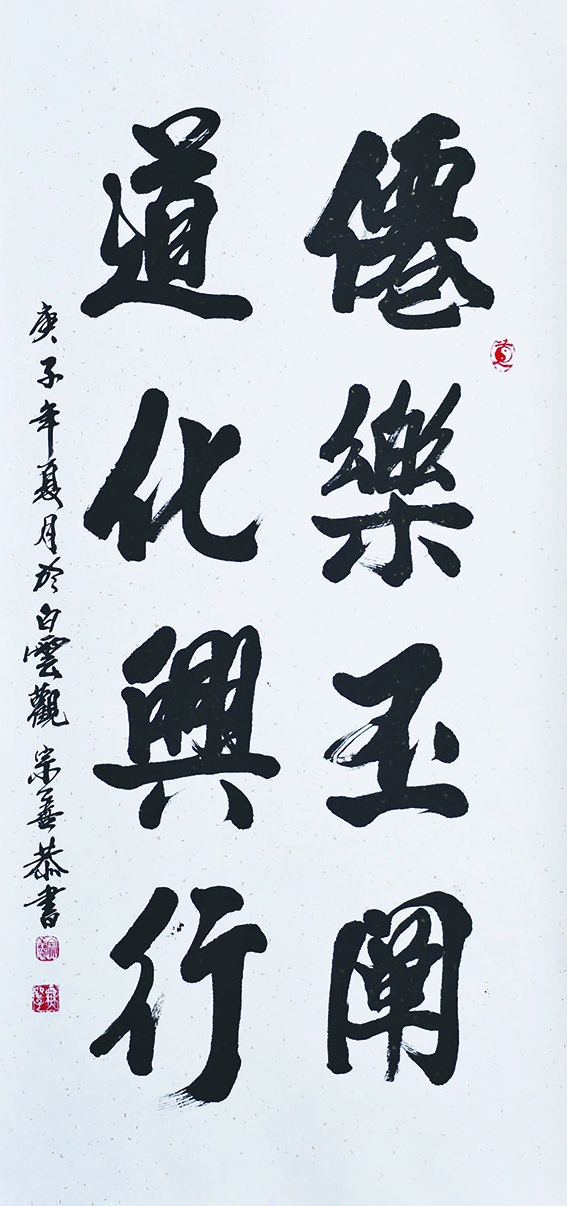 僊樂玉闡
道化興行
庚子年夏月於白雲觀宗善恭書